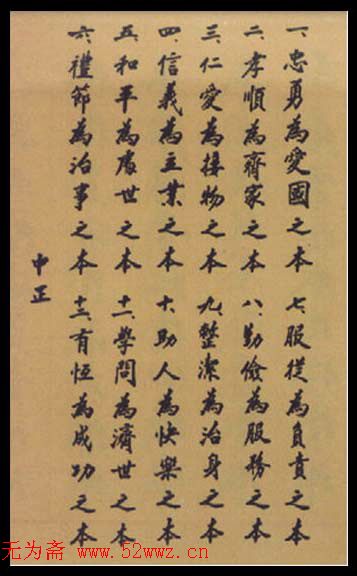 一、忠勇為愛國之本
二、孝順為齊家之本
三、仁愛為接物之本
四、信義為立業之本
五、和平為處世之本
六、禮節為治事之本
七、服從為負責之本
八、勤儉為服務之本
九、整潔為治身之本
十、助人為快樂之本
十一、學問為濟世之本
十二、有恆為成功之本
中正
无为斋 www.52wwz.cn